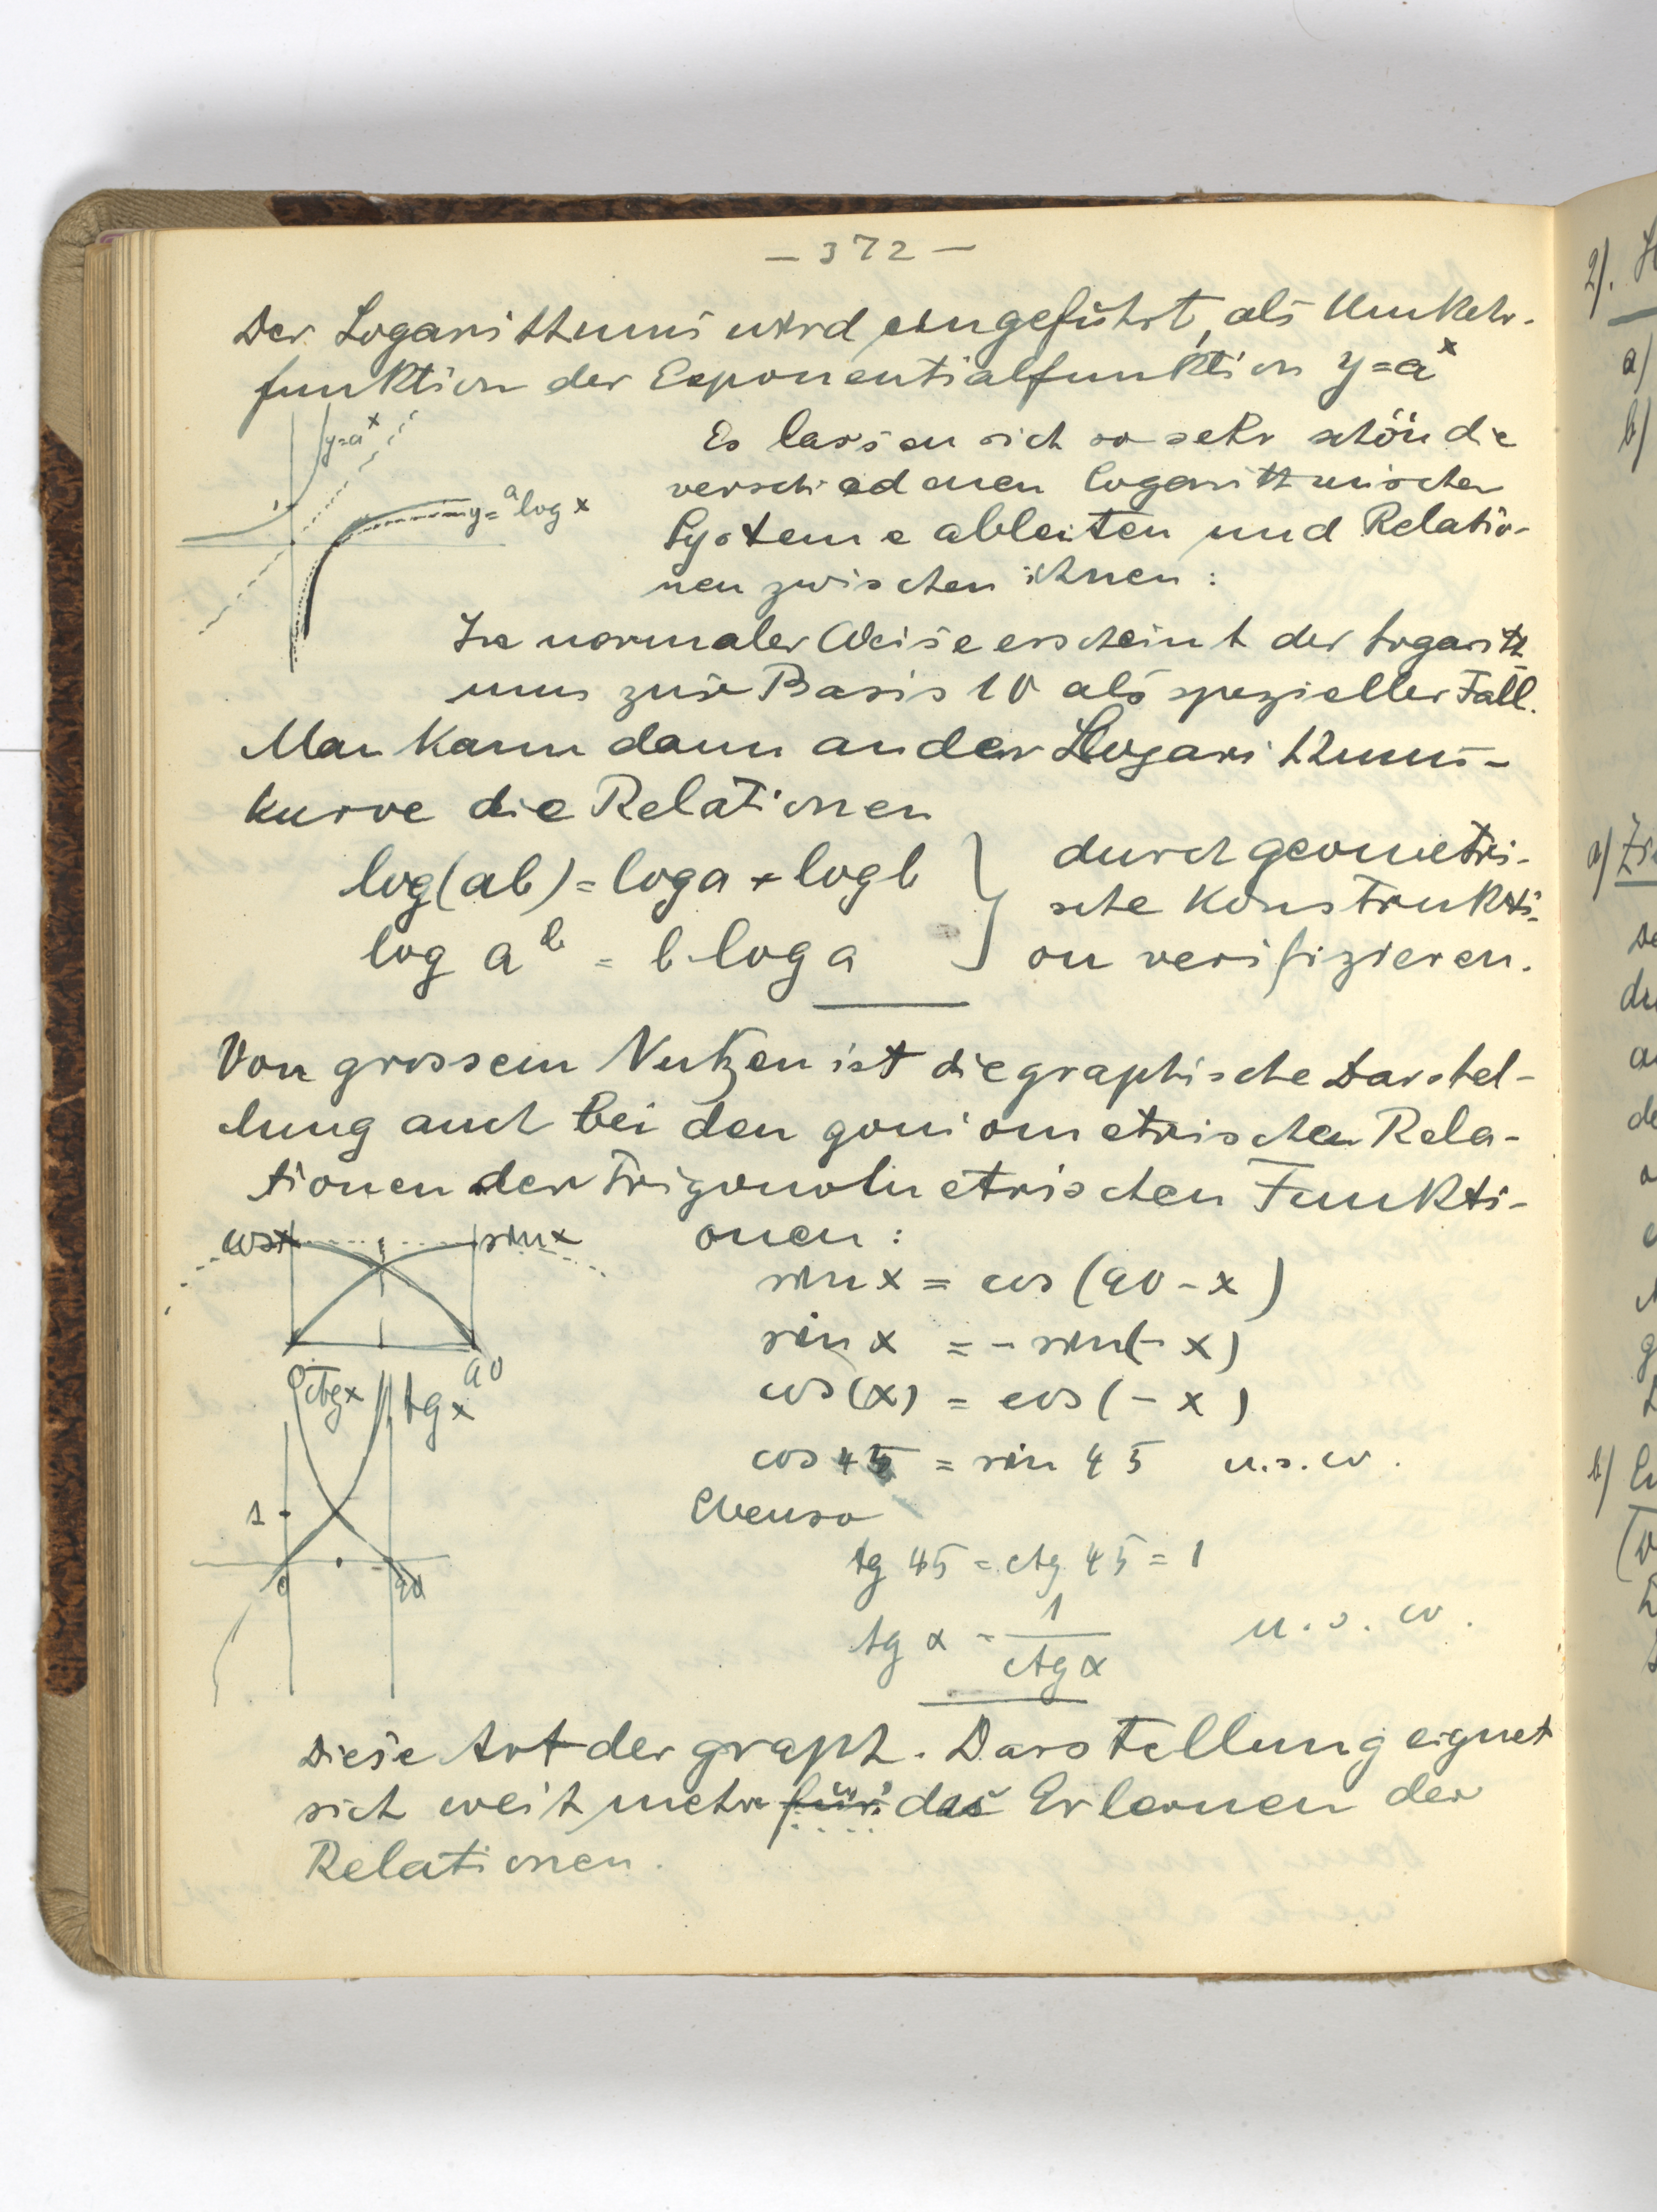 – 372 –
Der Logarithmus wird eingeführt, als Umkehr-
funktion der Exponentialfunktion y=aˣ
y=aˣ
1
y=ᵃlog x
Es lassen sich so sehr schön die
verschiedenen logarithmischen
Systeme ableiten und Relatio-
nen zwischen ihnen:
In normaler Weise erscheint der Logarith
mus zur Basis 10 als spezieller Fall.
Man kann dann an der Logarithmus-
kurve die Relationen
log(ab) = log a + log b
log aᵇ = b log a
durch geometri-
sche Konstrukti-
on verifizieren.
Von grossem Nutzen ist die graphische Darstel-
lung auch bei den goniometrischen Rela-
tionen der trigonometrischen Funkti-
onen:
cos x
sin x
0
90
sin x = cos (90 - x)
sin x = - sin(- x)
cos(x) = cos (- x)
cos 45 = sin 45 u.s.w.
ctg x
tg x
1
0
90
Ebenso
tg 45 = ctg 45 = 1
tg α = 1/ctg α u.s.w.
Diese Art der graph. Darstellung eignet
sich weit mehr für das Erlernen der
Relationen.
2).
a)
b)
a)
b)